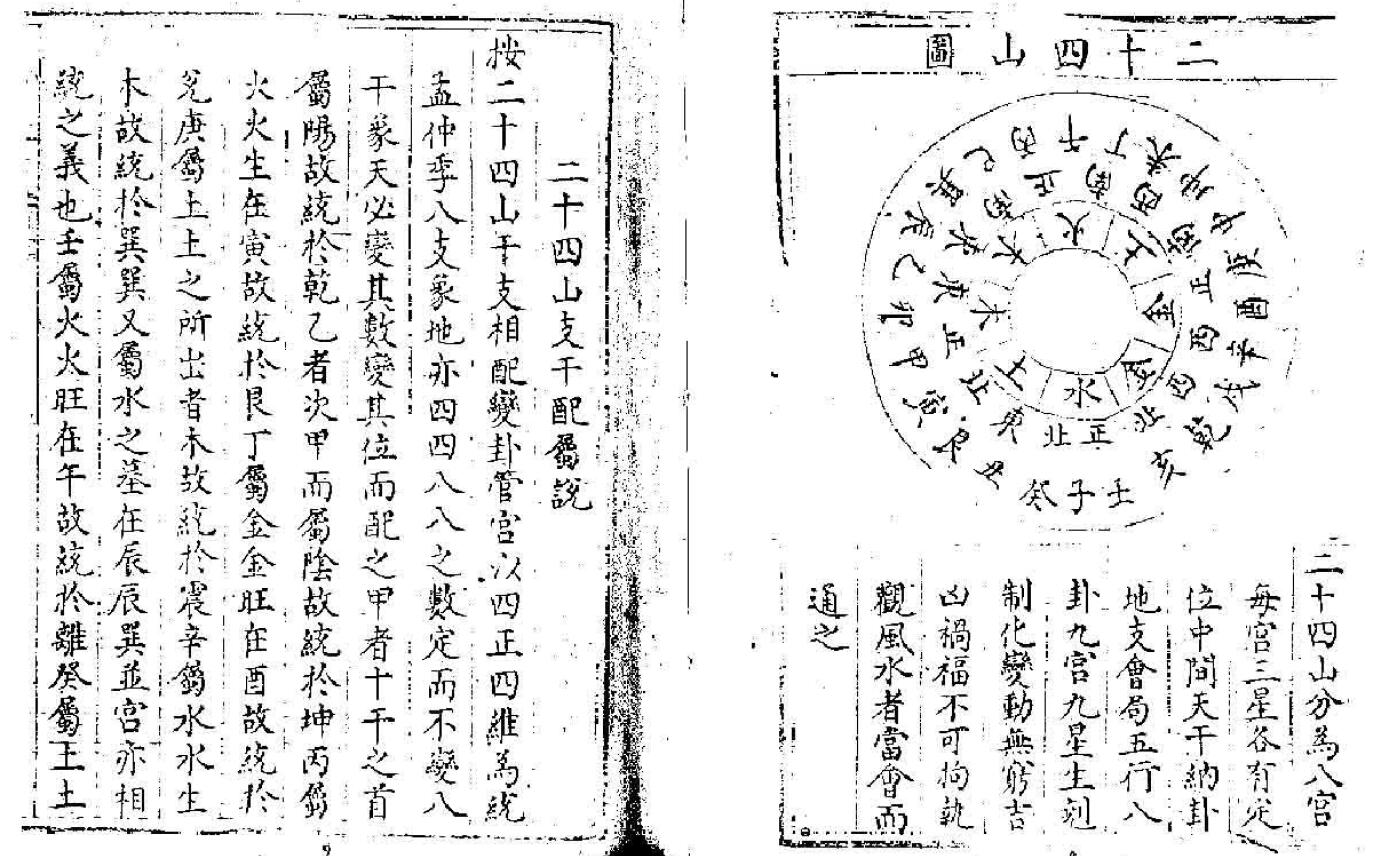 二十四山圖
壬子癸丑艮寅甲卯乙辰巽巳丙午丁未坤申庚酉辛戌乾亥
正北
東北
正東
東南
正南
西南
正西
西北
水
土
木
木
火
土
金
金
二十四山分為八宮
每宮三星各有定
位中間天干納卦
地支會局五行八
卦九宮九星生剋
制化變動無窮吉
凶禍福不可拘執
觀風水者當會而
通之
二十四山支干配屬說
按二十四山干支相配變卦管宮以四正四維為統
孟仲季八支象地亦四四八八之數定而不變八
干象天必變其數變其位而配之甲者十干之首
屬陽故統於乾乙者次甲而屬陰故統於坤丙屬
火火生在寅故統於艮丁屬金金旺在酉故統於
兌庚屬土土之所出者木故統於震辛屬水水生
木故統於巽巽又屬水之墓在辰辰巽並宮亦相
統之義也壬屬火火旺在午故統於離癸屬王土